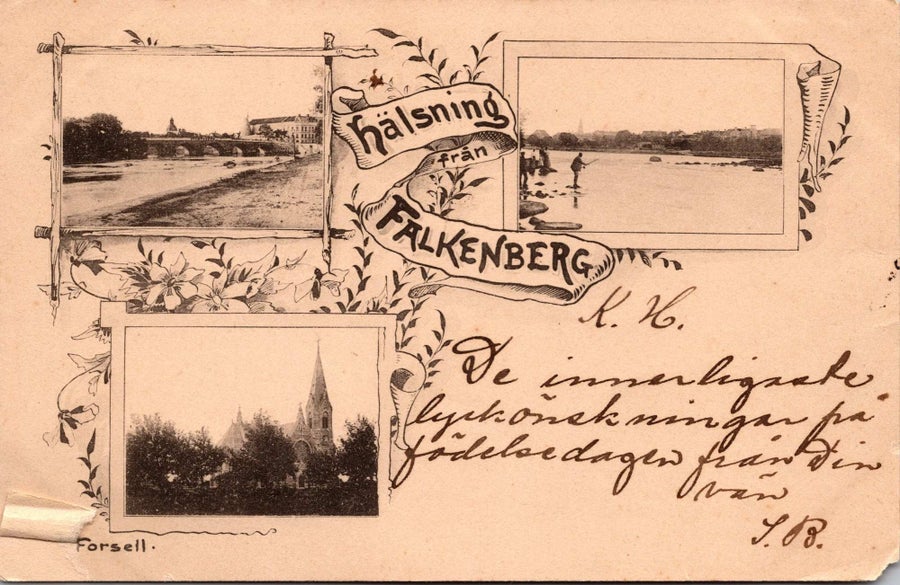 Hälsning
från
FALKENBERG
K. H.
De innerligaste
lyckönskningar på
födelsedagen från Din
vän
S. B.
Forsell.